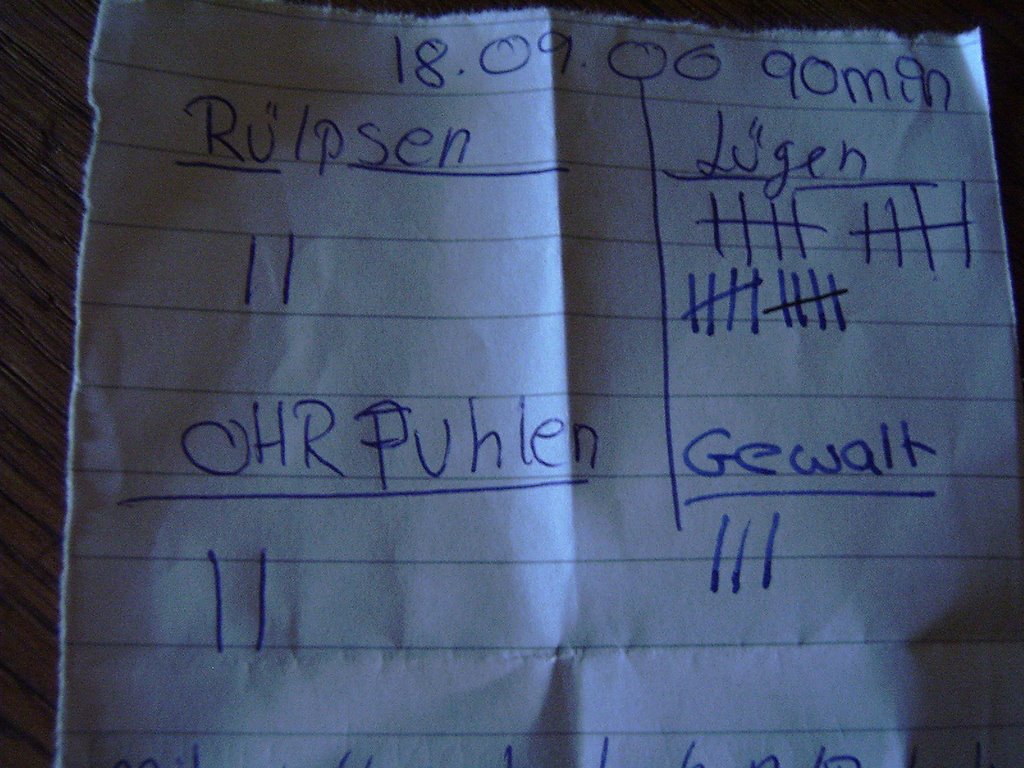 18.09.06 90min
Rülpsen
Lügen
OHR Puhlen
Gewalt